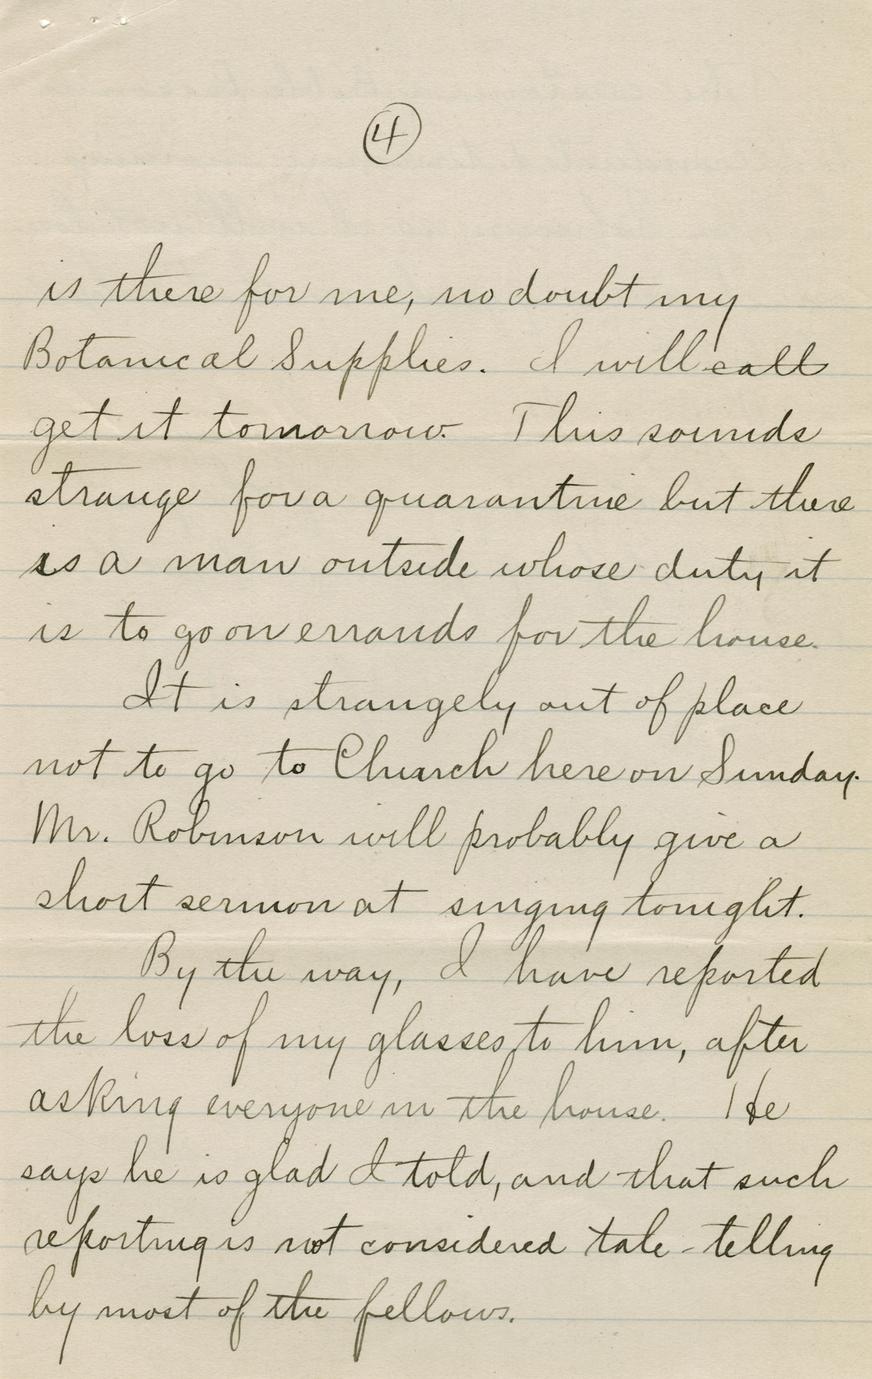 4
is there for me, no doubt my
Botanical Supplies. I will call
get it tomorrow. This sounds
strange for a quarantine but there
is a man outside whose duty it
is to go on errands for the house.
It is strangely out of place
not to go to Church here on Sunday.
Mr. Robinson will probably give a
short sermon at singing tonight.
By the way, I have reported
the loss of my glasses to him, after
asking everyone in the house. He
says he is glad I told, and that such
reporting is not considered tale-telling
by most of the fellows.